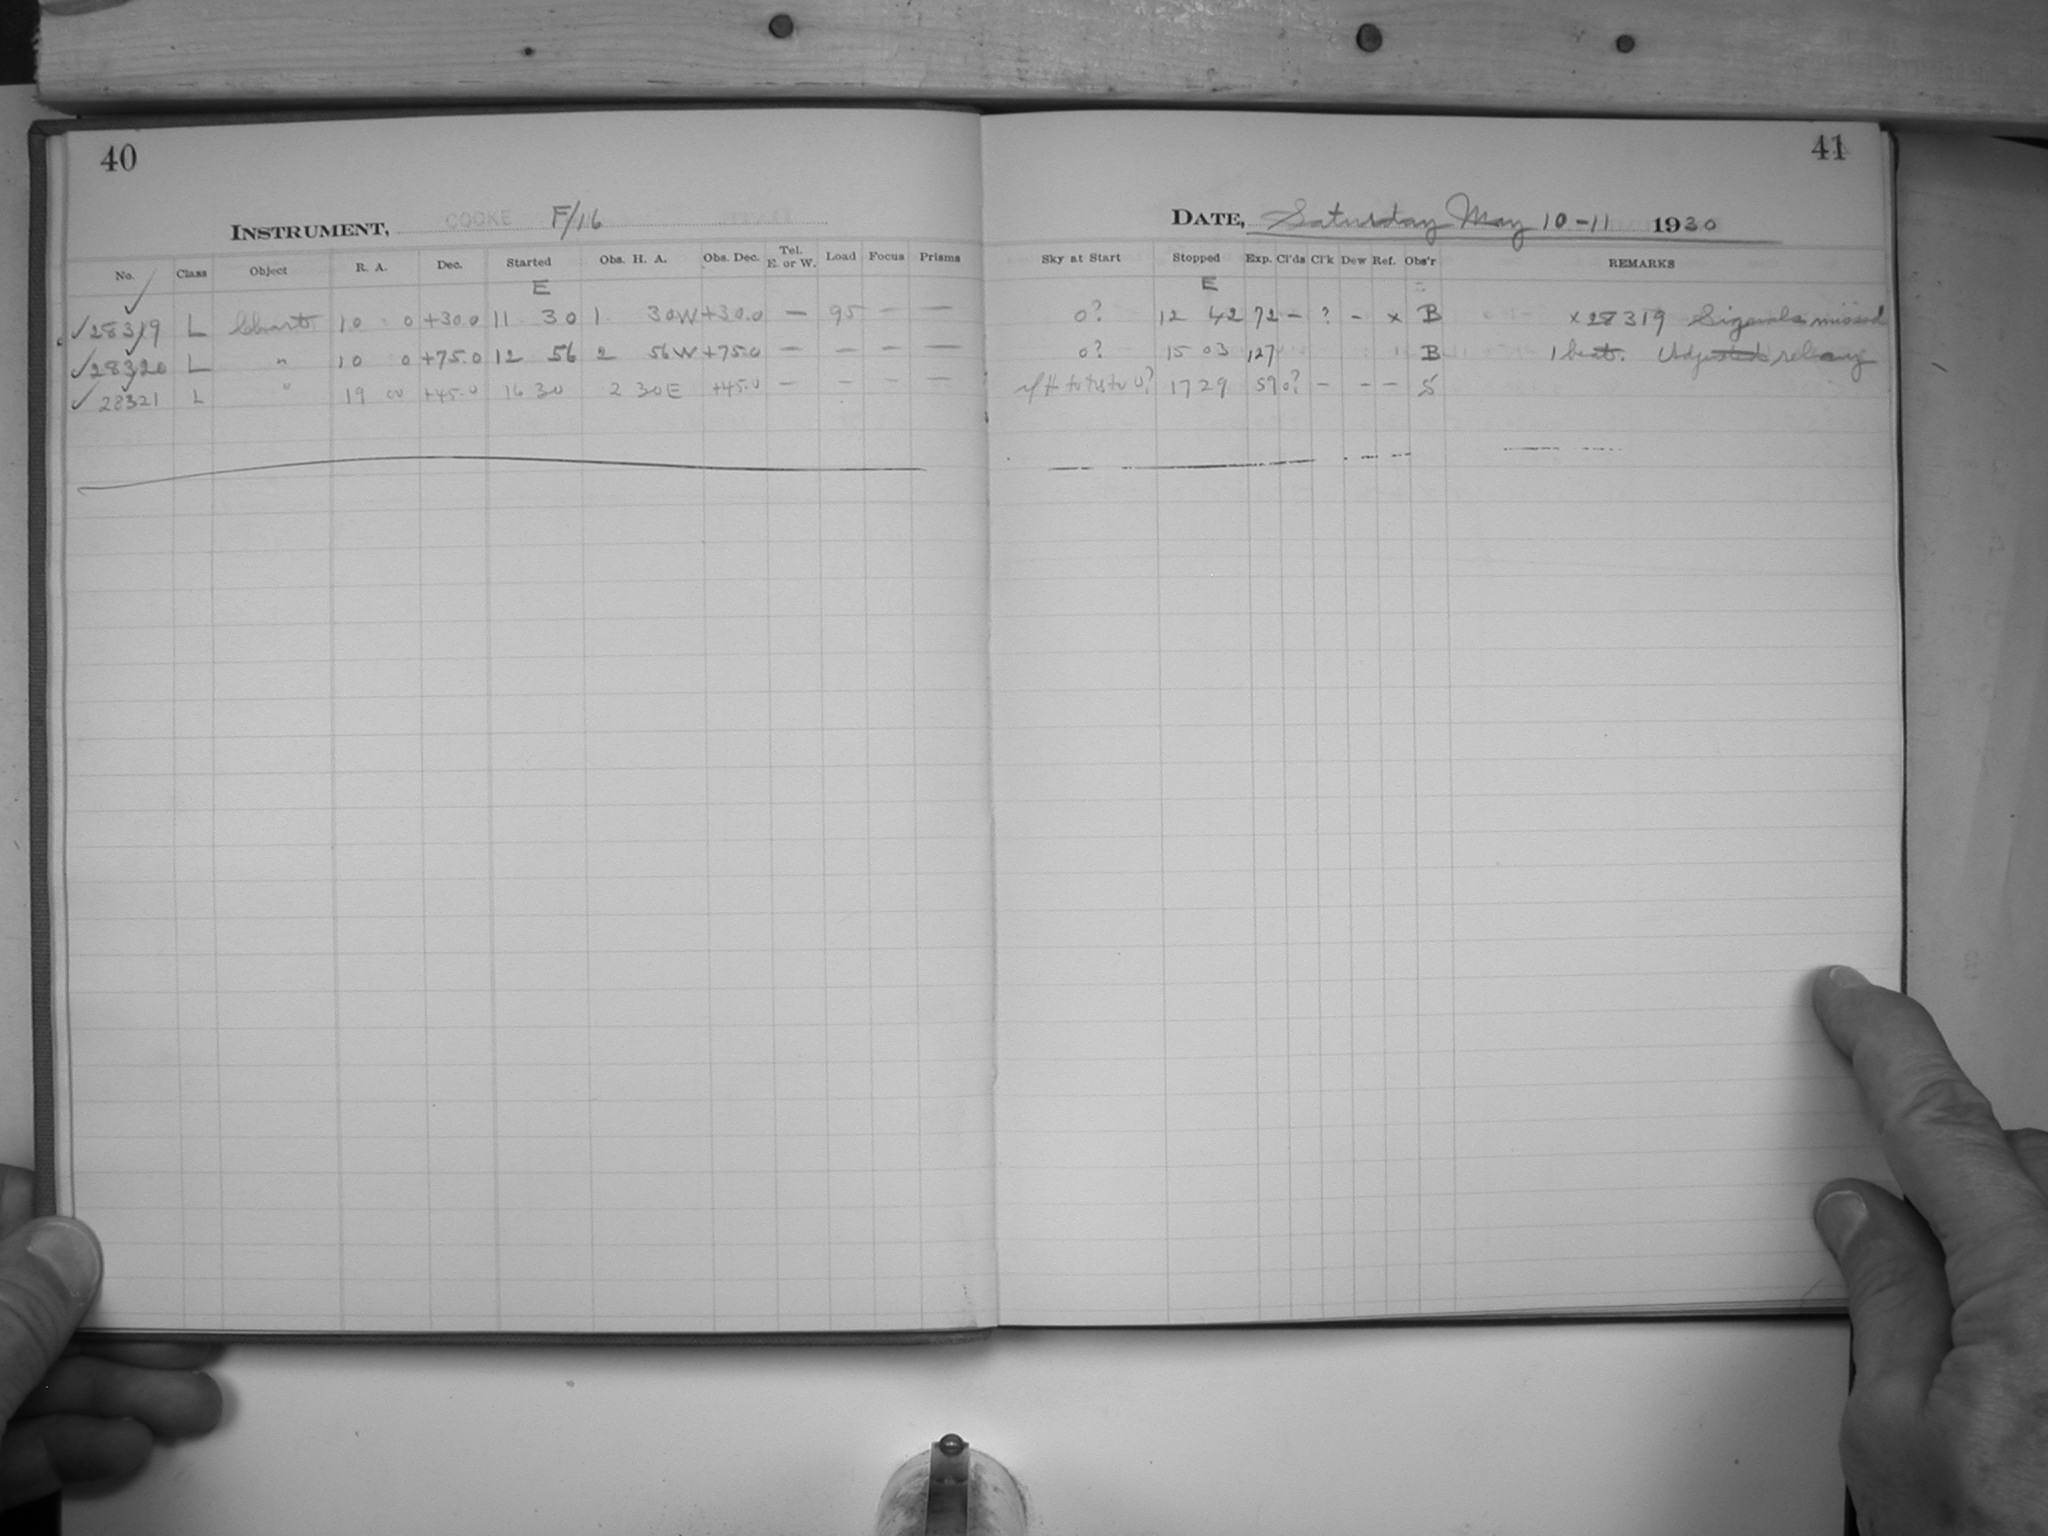 40
INSTRUMENT, COOKE F/16
No. Class Object R. A. Dec. Started Obs. H. A. Obs. Dec. Tel. E. or W. Load Focus Prisms
E
✓28319 L Chart 10 0 +30.0 11 30 1 30W +30.0 — 95 — —
✓28320 L " 10 0 +75.0 12 56 2 56W +75.0 — — — —
✓28321 L " 19 00 +45.0 16 30 2 30E +45.0 — — — —
41
DATE, Saturday May 10-11 1930
Sky at Start Stopped Exp. Cl'ds Cl'k Dew Ref. Obs'r REMARKS
E
0? 12 42 72 — ? — x B x28319 Signals missed
0? 15 03 127 B 1 beat. Adjusted relay
0? 17 29 59 0? — — — S